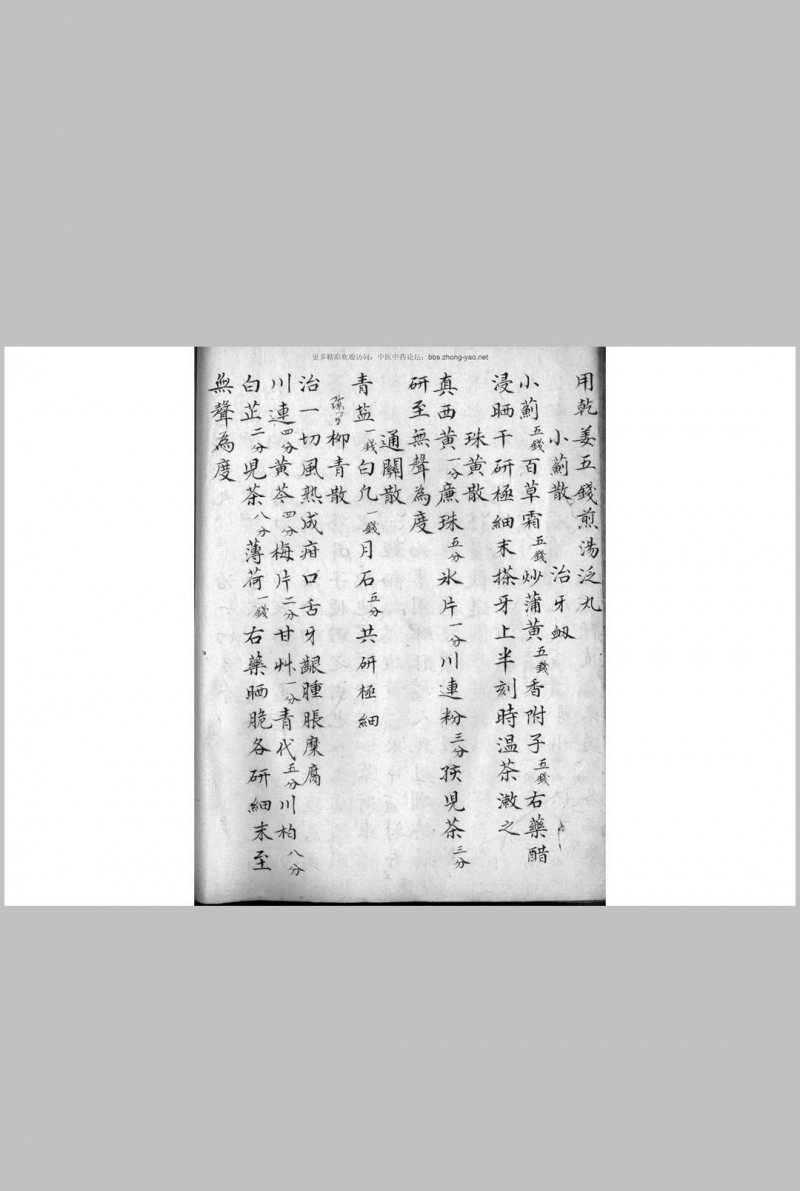 更多精彩欢迎访问：中医中药论坛：bbs.zhong-yao.net
用乾姜五錢煎湯泛丸
小薊散 治牙衄
小薊五錢百草霜五錢炒蒲黃五錢香附子五錢右藥醋
浸晒干研極細末搽牙上半刻時温茶漱之
珠黃散
真西黃一分廉珠五分氷片一分川連粉三分孩児茶三分
研至無聲為度
通關散
青盐一錢白凢一錢月石五分共研極細
柳青散
治一切風熟成疳口舌牙齦腫脹糜腐
川連四分黃芩四分梅片二分甘艸一分青代五分川柏八分
白芷二分児茶八分薄荷一錢右藥晒脆各研細末至
無聲為度